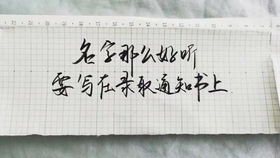 名字那么好听
要写在录取通知书上